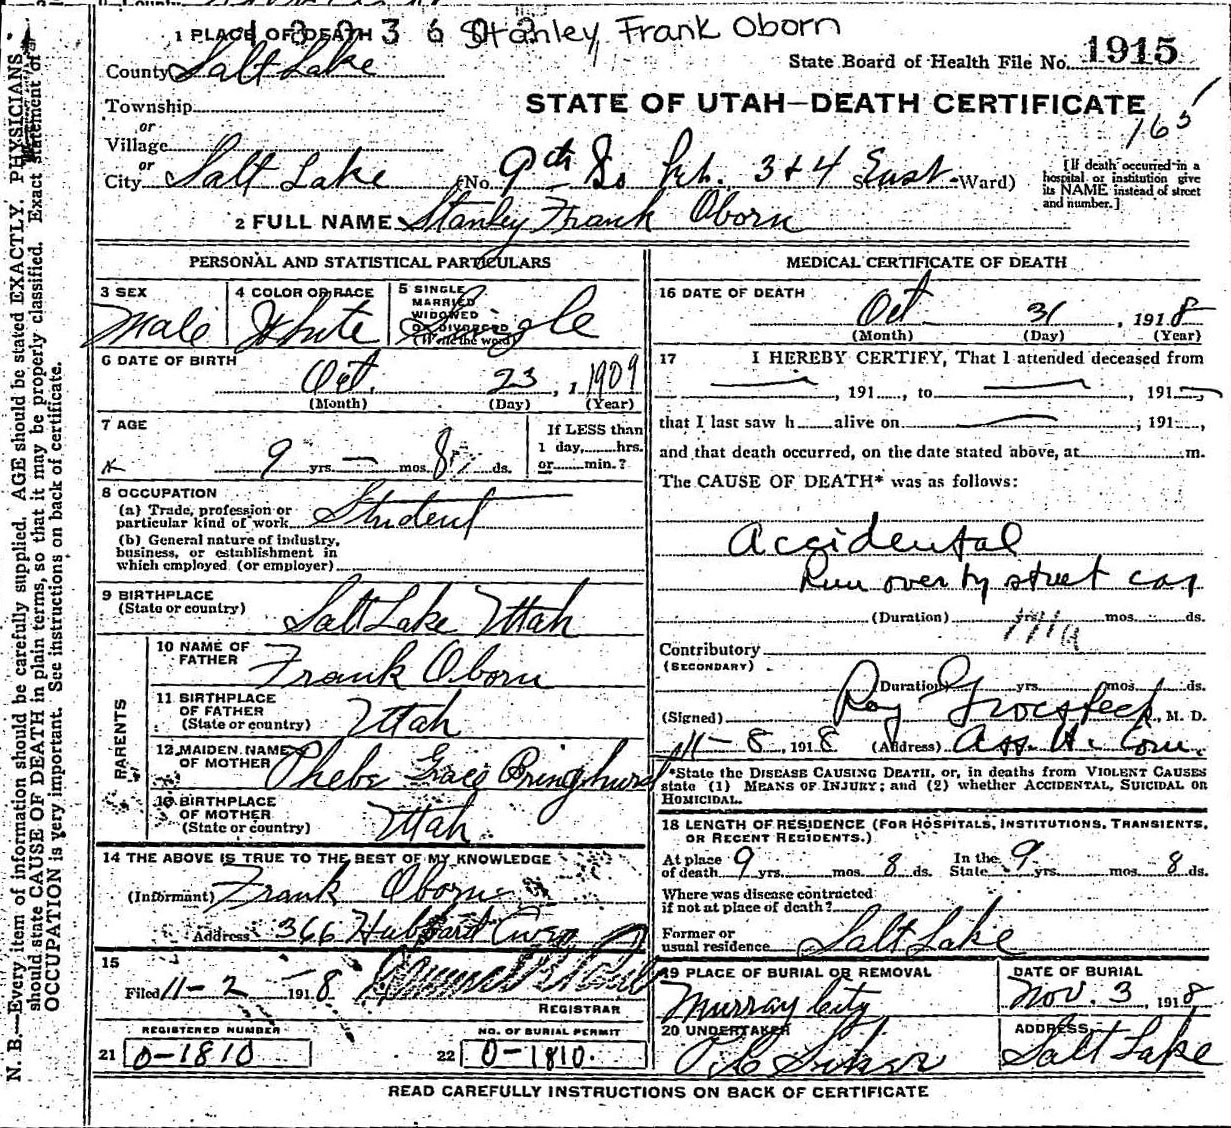 Stanley Frank Oborn
1 PLACE OF DEATH
County Salt Lake
State Board of Health File No. 1915
STATE OF UTAH—DEATH CERTIFICATE
165
Township
or
Village
or
City Salt Lake (No. 9th So bet. 3 & 4 St East Ward)
[If death occurred in a hospital or institution give its NAME instead of street and number.]
2 FULL NAME Stanley Frank Oborn
PERSONAL AND STATISTICAL PARTICULARS
3 SEX Male
4 COLOR OR RACE White
5 SINGLE MARRIED WIDOWED OR DIVORCED (Write the word) Single
6 DATE OF BIRTH
Oct. 23, 1909
(Month) (Day) (Year)
7 AGE
9 yrs. — mos. 8 ds.
If LESS than
1 day, hrs.
or min.?
8 OCCUPATION
(a) Trade, profession or
particular kind of work Student
(b) General nature of industry,
business, or establishment in
which employed (or employer)
9 BIRTHPLACE
(State or country) Salt Lake Utah
PARENTS
10 NAME OF
FATHER Frank Oborn
11 BIRTHPLACE
OF FATHER
(State or country) Utah
12 MAIDEN NAME
OF MOTHER Phebe Grace Bringhurst
13 BIRTHPLACE
OF MOTHER
(State or country) Utah
14 THE ABOVE IS TRUE TO THE BEST OF MY KNOWLEDGE
(Informant) Frank Oborn
Address 366 Hubbard Ave
15
Filed 11-2 - 1918
REGISTRAR
REGISTERED NUMBER
21 0-1810
NO. OF BURIAL PERMIT
22 0-1810.
MEDICAL CERTIFICATE OF DEATH
16 DATE OF DEATH
Oct 31, 1918
(Month) (Day) (Year)
17 I HEREBY CERTIFY, That I attended deceased from
, 191 , to , 191 ,
that I last saw h alive on ; 191 ,
and that death occurred, on the date stated above, at m.
The CAUSE OF DEATH* was as follows:
Accidental
Run over by street car
(Duration) yrs. mos. ds.
Contributory
(SECONDARY)
(Duration) yrs. mos. ds.
(Signed) Roy Groesbeck, M. D.
11-8, 1918 (Address) Ass. H. Com.
*State the DISEASE CAUSING DEATH, or, in deaths from VIOLENT CAUSES
state (1) MEANS OF INJURY; and (2) whether ACCIDENTAL, SUICIDAL OR
HOMICIDAL.
18 LENGTH OF RESIDENCE (FOR HOSPITALS, INSTITUTIONS, TRANSIENTS,
OR RECENT RESIDENTS.)
At place of death 9 yrs. mos. 8 ds. In the State 9 yrs. mos. 8 ds.
Where was disease contracted
if not at place of death?
Former or
usual residence Salt Lake
19 PLACE OF BURIAL OR REMOVAL
Murray City
DATE OF BURIAL
Nov. 3, 1918
20 UNDERTAKER
ADDRESS
Salt Lake
READ CAREFULLY INSTRUCTIONS ON BACK OF CERTIFICATE
N. B.—Every item of information should be carefully supplied. AGE should be stated EXACTLY. PHYSICIANS
should state CAUSE OF DEATH in plain terms, so that it may be properly classified. Exact statement of
OCCUPATION is very important. See instructions on back of certificate.